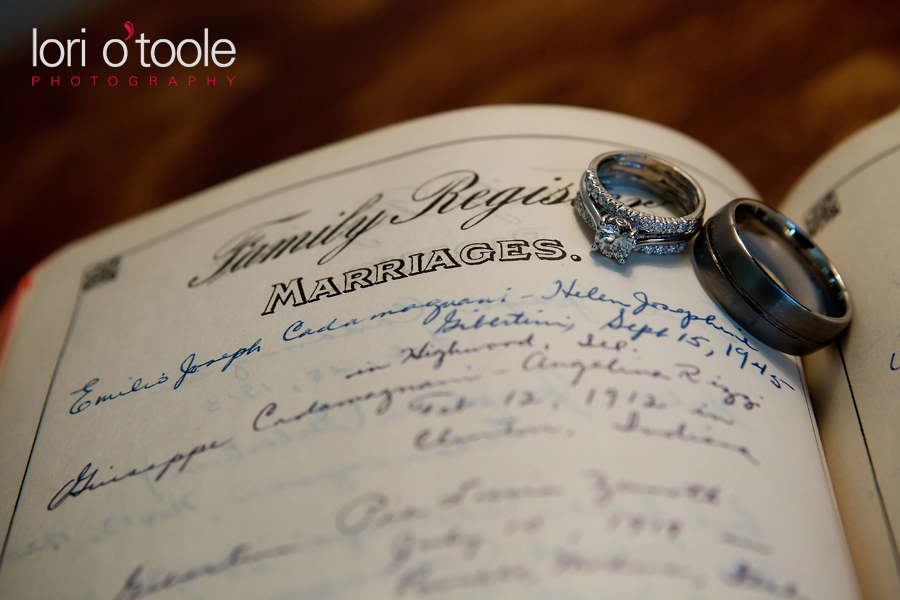 lori o'toole
PHOTOGRAPHY
Family Register
MARRIAGES.
Emilio Joseph Cadamagnani - Helen Josephine
Gibertini, Sept 15, 1945
in Highwood, Ill.
Giuseppe Cadamagnani - Angelina Rizzi
Feb 12, 1912 in
Clinton, Indiana
Pia
July 1919 in